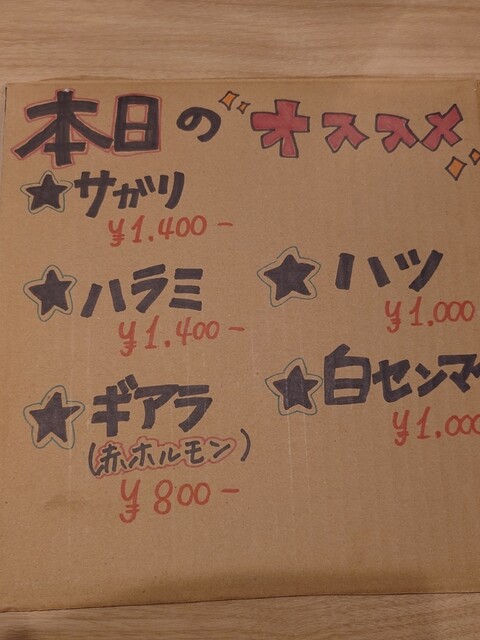 本日のオススメ
★サガリ
¥1.400-
★ハラミ
¥1.400-
★ギアラ
(赤ホルモン)
¥800-
★ハツ
¥1.000
★白センマイ
¥1.000